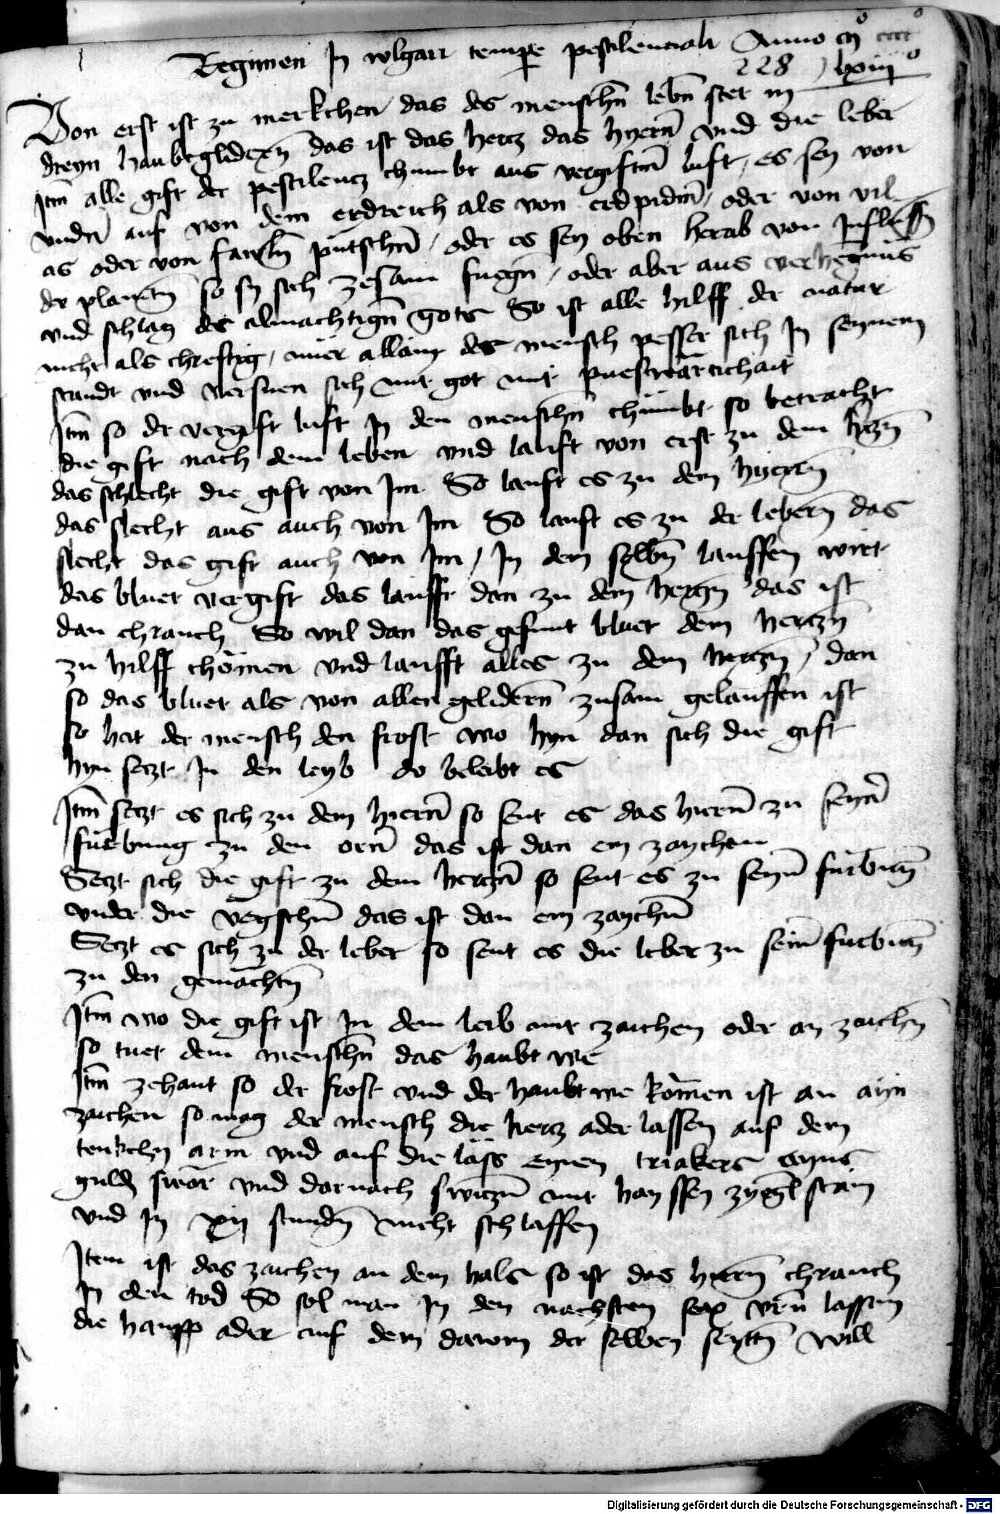 Regimen In wlgari tempore pestilenciali Anno m° cccc°
228 lxiii°
Von erst ist zu merkchen das des menschn lebn stet in
dreyn haubtglidern das ist das hercz das hyern vnd die leber
Itm alle gift der pestilencz chumbt aus vergiftm luft, es sey von
vndn auf von dem erdreich als von erdpidm, oder von vil
as oder von fawln putschn, oder es sey oben herab von Influssn
der planetn so sy sich zesam fuegn, oder aber aus verhegnus
vnd schlag des almachtign gots So ist alle hilff der natur
nicht als chreftig, nuer allain des mensch pesser sich In seynem
standt vnd versuen sich mit got mit
Itm so der vergift luft In den menschn chumbt so betracht
die gift nach dem leben vnd lauft von erst zu dem herczn
das schlecht die gift von Im So lauft es zu dem hyeren
das slecht aus auch von Im So lauft es zu der lebern das
slecht das gift auch von Im, In dem selbn lauffen wirt
das bluet vergift das laufft dan zu dem herczn das ist
dan chranch So wil dan das gesunt bluet dem herczn
zu hilff chomen vnd laufft alles zu dem herczn, dan
so das bluet als von allen gelidern zusam gelauffen ist
so hat der mensch den frost wo hyn dan sich die gift
hyn seczt In den leyb do beleibt es
Itm seczt es sich zu dem hyern so sent es das hiern zu seynr
furbung zu den orn das ist dan ein zaychen
Seczt sich die gift zu dem herczn so sent es zu seynr furbung
vnder die vegschn das ist dan ein zaychn
Seczt es sich zu der leber so sent es die leber zu seinr furbung
zu den gemachtn
Itm wo die gift ist In dem leib mit zaichen oder an zaichn
so tuet dem menschn das haubt we
Itm zehant so der frost vnd der haubtwe komen ist an ayn
zaichen so mag der mensch die hercz ader lassen auf dem
tenkchn arm vnd auf die läss eynen triakers ayns
guldn swar vnd darnach swiczn mit hayssen zyglstain
vnd In xii stundn nicht schlaffen
Item ist das zaichen an dem hals so ist das hyern chranch
In den tod So sol man In den nachsten sex vrn lassen
die haupp ader auf dem dawm der selben seyttn will
Digitalisierung gefördert durch die Deutsche Forschungsgemeinschaft - DFG